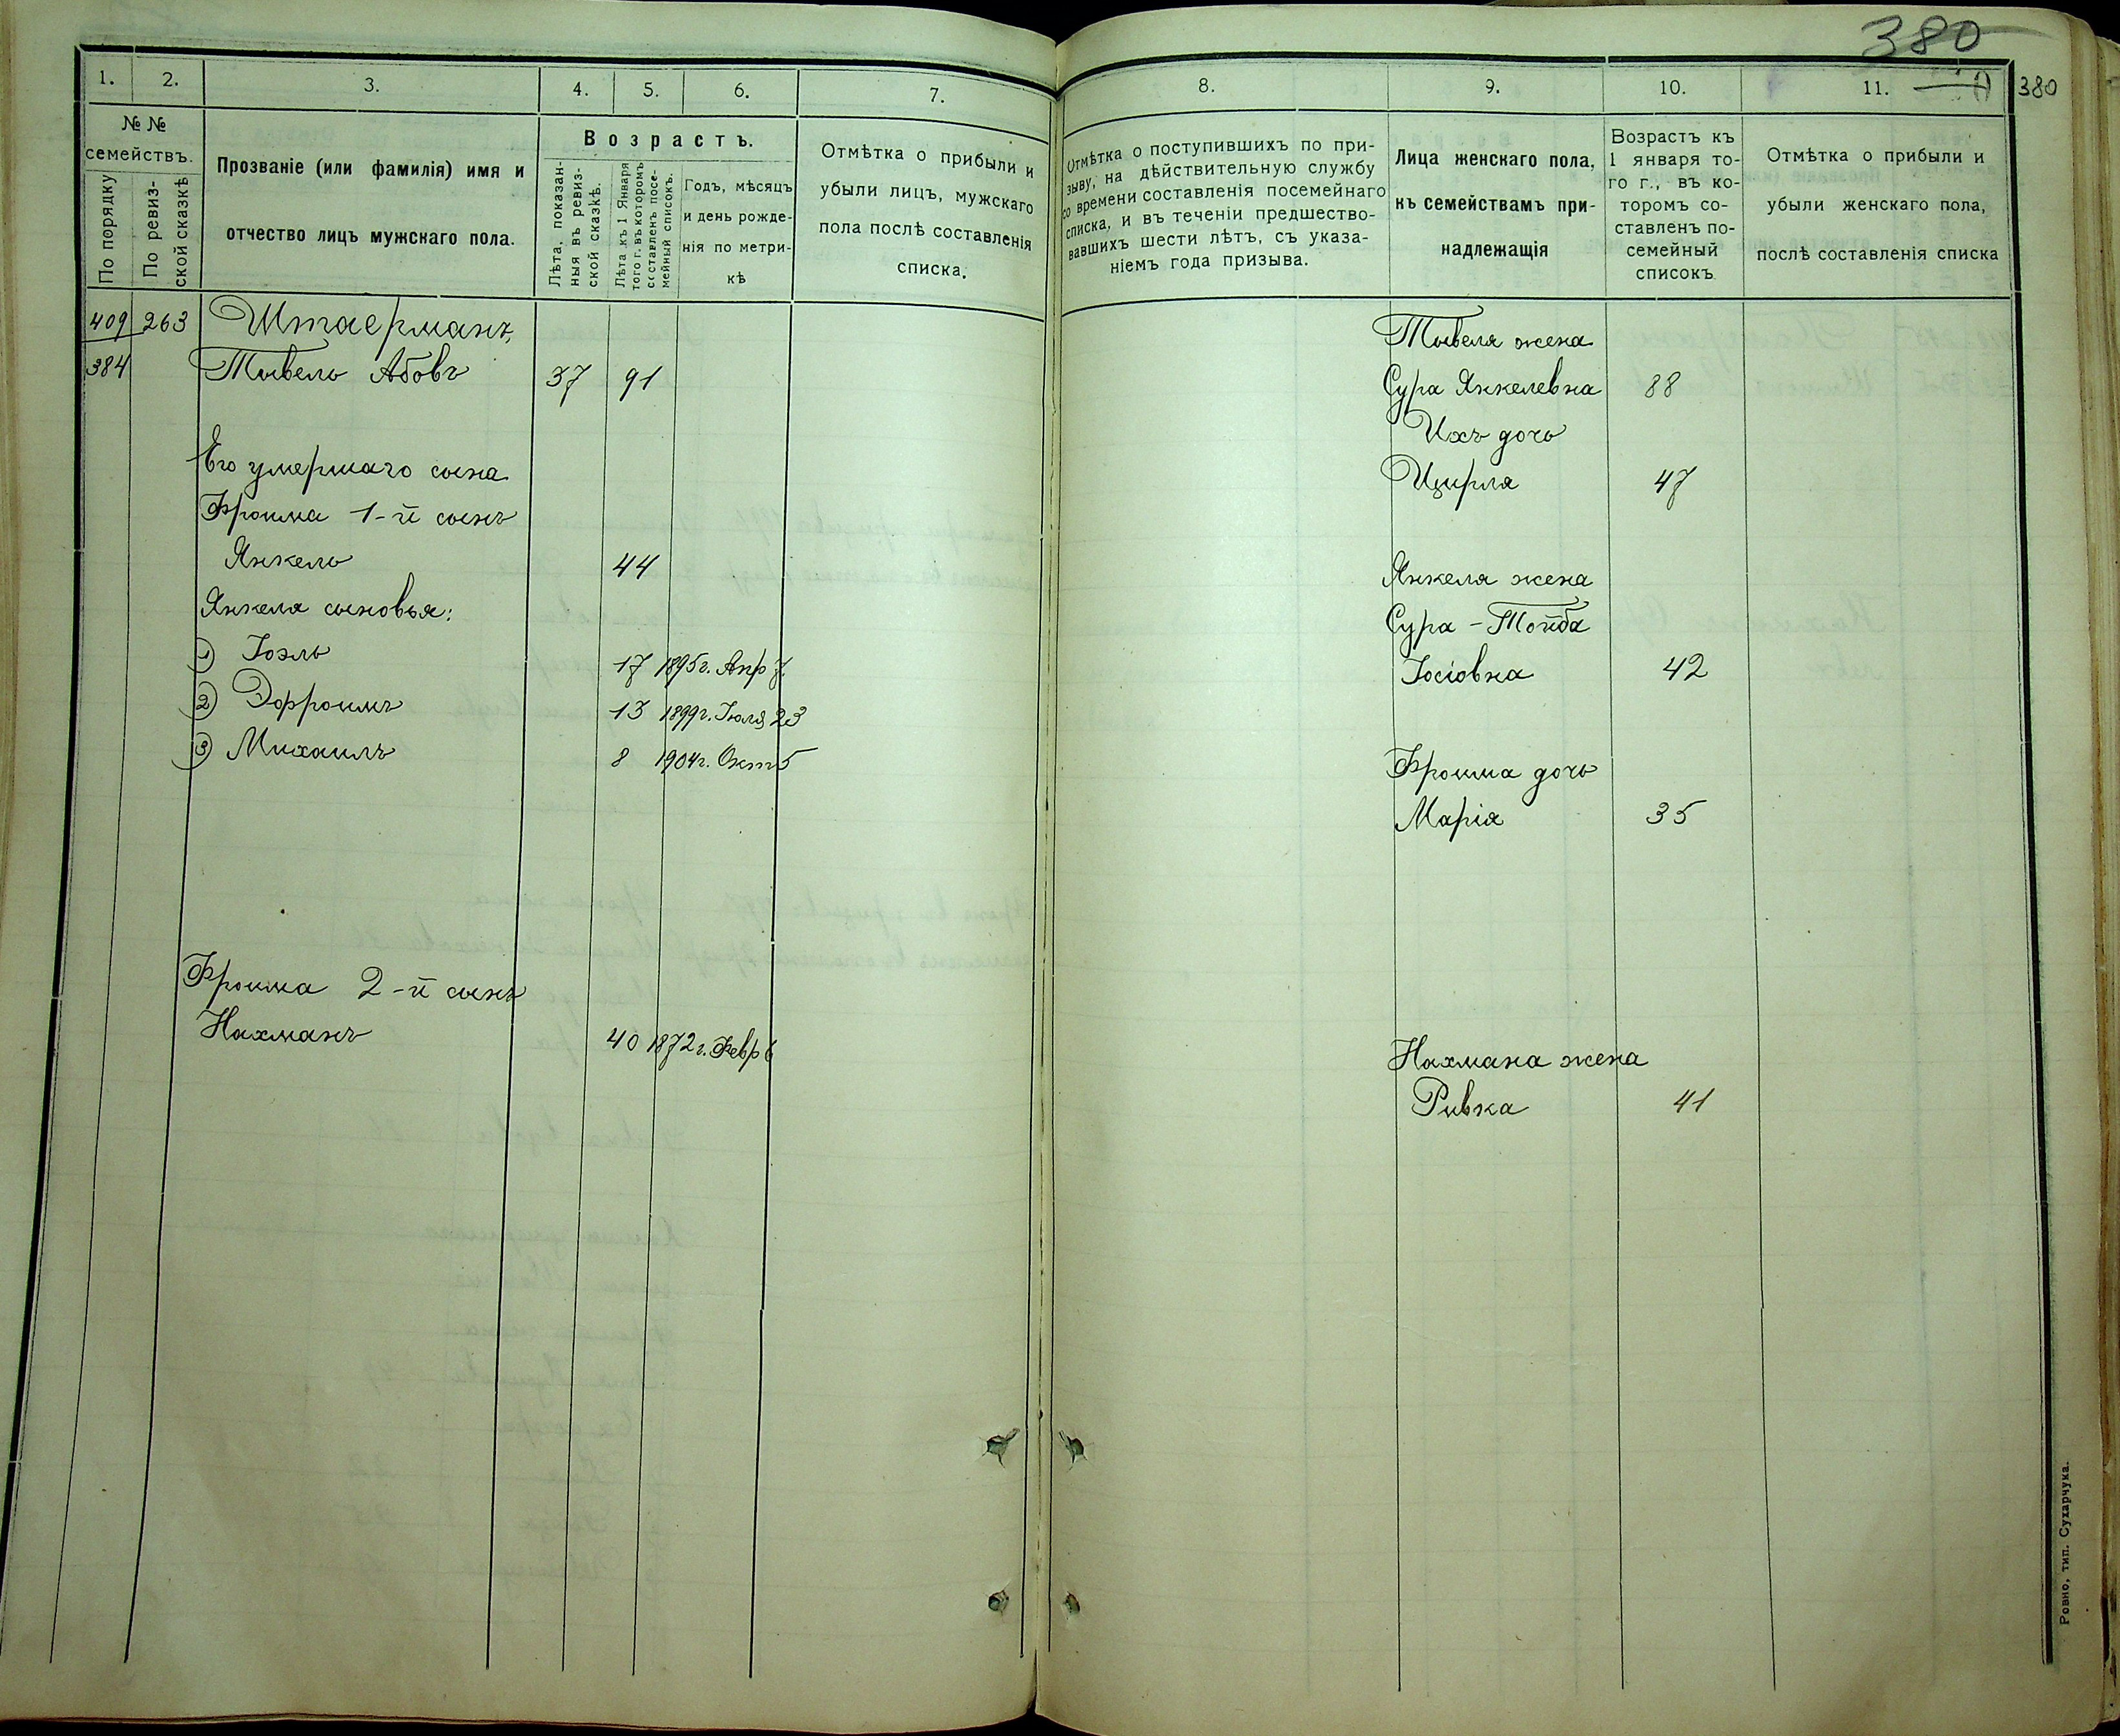 380
380
1. 2. 3. 4. 5. 6. 7.
№ №
семействъ.
По порядку
По ревиз-
ской сказкѣ
Прозваніе (или фамилія) имя и
отчество лицъ мужскаго пола.
Возрастъ.
Лѣта, показан-
ныя въ ревиз-
ской сказкѣ.
Лѣта къ 1 Января
того г. въ которомъ
составленъ посе-
мейный списокъ.
Годъ, мѣсяцъ
и день рожде-
нія по метри-
кѣ
Отмѣтка о прибыли и
убыли лицъ, мужскаго
пола послѣ составленія
списка.
409 263 Штаерманъ,
384 Тывель Абовъ 37 91
Его умершаго сына
Фроима 1-й сынъ
Янкель 44
Янкеля сыновья:
1) Іоэль 17 1895г. Апр 7.
2) Эфроимъ 13 1899г. Іюля 23
3) Михаилъ 8 1904г. Окт 5
Фроима 2-й сынъ
Нахманъ 40 1872г. Февр 6
8. 9. 10. 11.
Отмѣтка о поступившихъ по при-
зыву, на дѣйствительную службу
со времени составленія посемейнаго
списка, и въ теченіи предшество-
вавшихъ шести лѣтъ, съ указа-
ніемъ года призыва.
Лица женскаго пола,
къ семействамъ при-
надлежащія
Возрастъ къ
1 января то-
го г., въ ко-
торомъ со-
ставленъ по-
семейный
списокъ
Отмѣтка о прибыли и
убыли женскаго пола,
послѣ составленія списка
Тывеля жена
Сура Янкелевна 88
Ихъ дочь
Цирля 47
Янкеля жена
Сура-Тойба
Іосіовна 42
Фроима дочь
Марія 35
Нахмана жена
Ривка 41
Ровно, тип. Сухарчука.